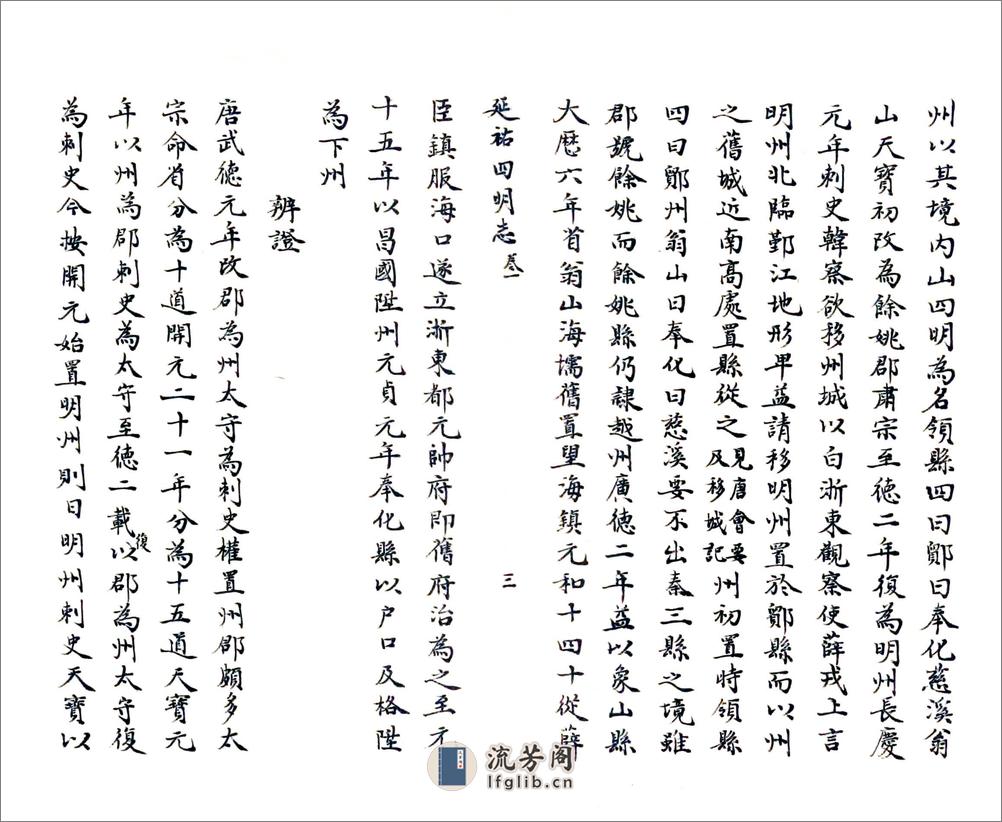 州以其境内山四明為名領縣四曰鄮曰奉化慈溪翁
山天寶初改為餘姚郡肅宗至德二年復為明州長慶
元年刺史韓察欲移州城以白浙東觀察使薛戎上言
明州北臨鄞江地形卑益請移明州置於鄮縣而以州
之舊城近南高處置縣從之見唐會要及移城記州初置時領縣
四曰鄮州翁山曰奉化曰慈溪要不出秦三縣之境雖
郡號餘姚而餘姚縣仍隷越州廣德二年益以象山縣
大曆六年首翁山海壖舊置望海鎮元和十四十從薛
延祐四明志 卷一 三
臣鎮服海口遂立浙東都元帥府即舊府治為之至元
十五年以昌國陞州元貞元年奉化縣以户口及格陞
為下州
辨證
唐武德元年改郡為州太守為刺史權置州郡頗多太
宗命省分為十道開元二十一年分為十五道天寶元
年以州為郡刺史為太守至德二載復以郡為州太守復
為刺史今按開元始置明州則曰明州刺史天寶以
流芳阁
lfglib.cn